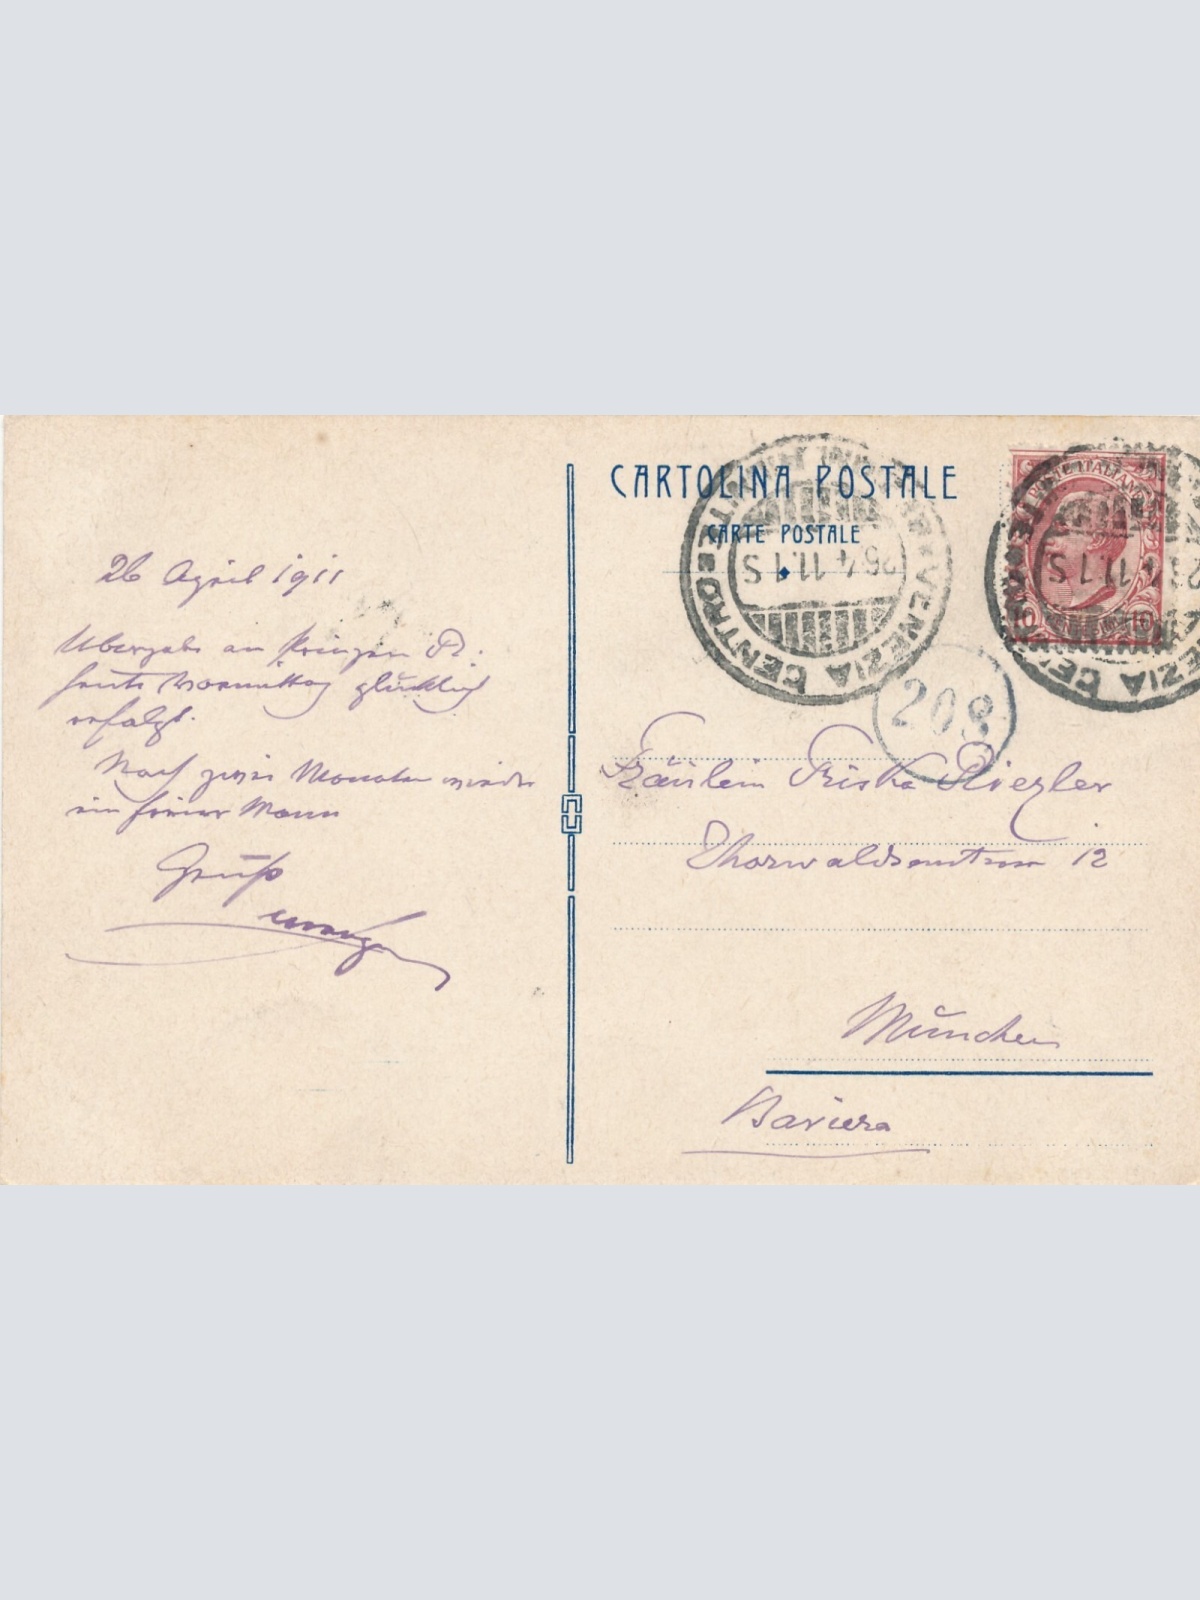 26 April 1911
Übergabe an Prinzen R:
heute Vormittag glücklich
erfolgt.
Nach zwei Monaten wieder
ein freier Mann
Gruß
CARTOLINA POSTALE
CARTE POSTALE
VENEZIA CENTRO
26.4.11.1S
POSTE ITALIANE
10 10
VENEZIA CENTRO
4.11.1S
208
Fräulein Riezler
Thorwaldsenstrasse 12
München
Baviera